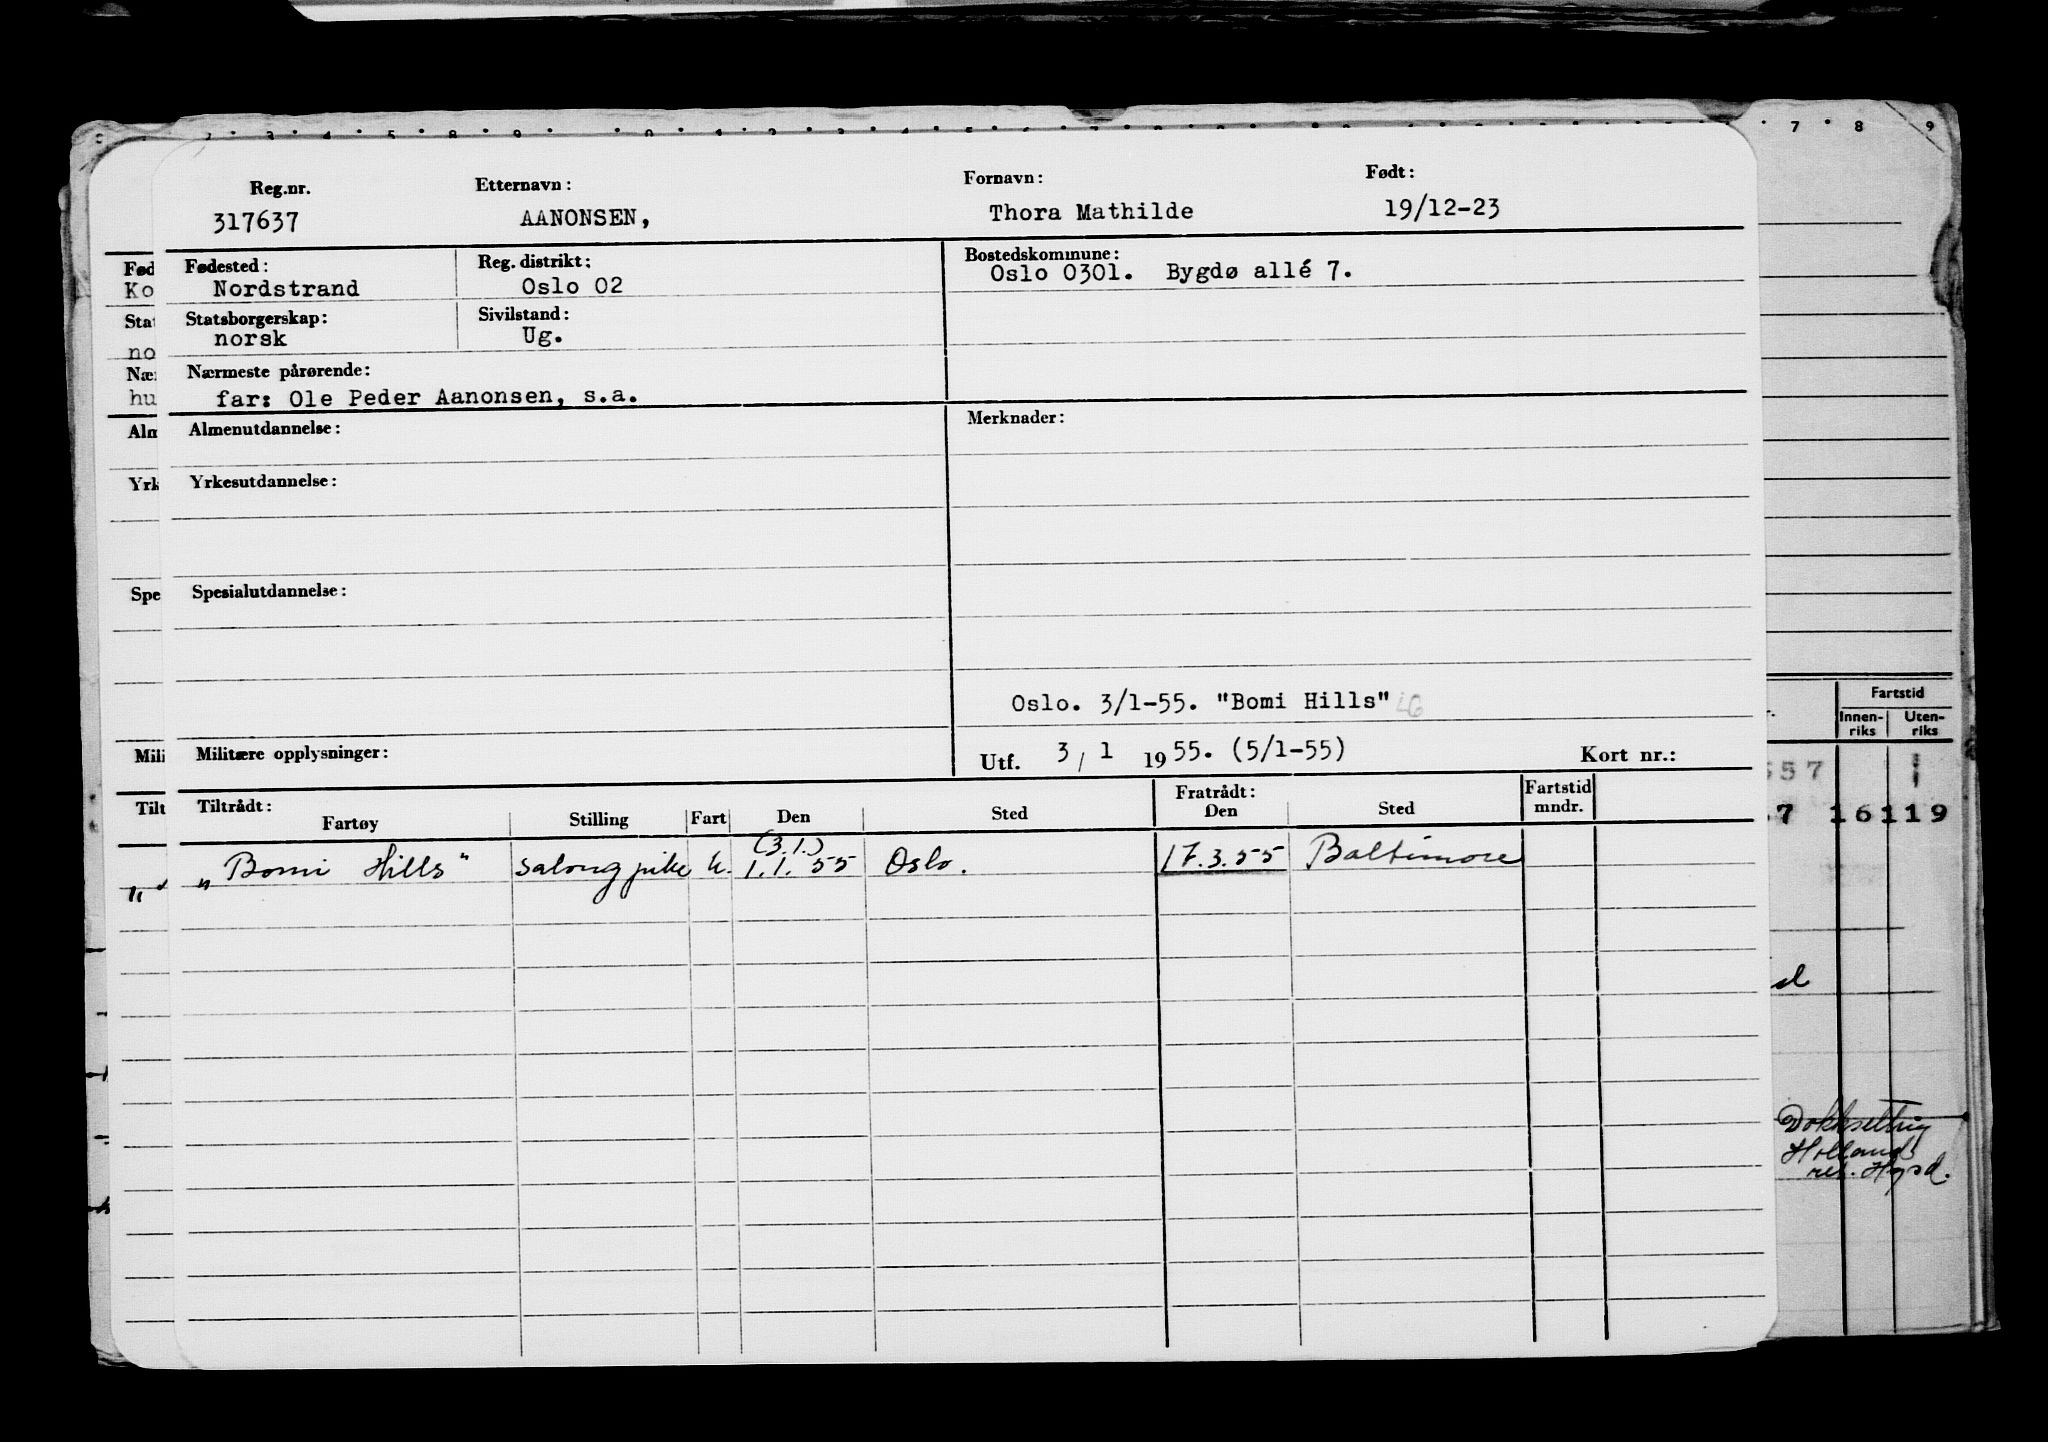 Reg.nr. Etternavn: Fornavn: Født:
317637 AANONSEN, Thora Mathilde 19/12-23
Fødested: Reg. distrikt: Bostedskommune:
Nordstrand Oslo 02 Oslo 0301. Bygdø allé 7.
Statsborgerskap: Sivilstand:
norsk Ug.
Nærmeste pårørende:
far: Ole Peder Aanonsen, s.a.
Almenutdannelse: Merknader:
Yrkesutdannelse:
Spesialutdannelse:
Oslo. 3/1-55. "Bomi Hills" LG
Militære opplysninger: Utf. 3/1 1955. (5/1-55) Kort nr.:
Tiltrådt: Fratrådt: Fartstid
Fartøy Stilling Fart Den Sted Den Sted mndr.
(3.1.)
„Bomi Hills" salongpike u. 1.1.55 Oslo. 17.3.55 Baltimore
Fød
Ko
Stat
no
Nær
hu
Alm
Yrk
Spe
Mili
Tilt
7 8 9
Fartstid
Innen- Uten-
riks riks
557
7 16 1 19
Dokksetting
Holland
rel. Hgsd.